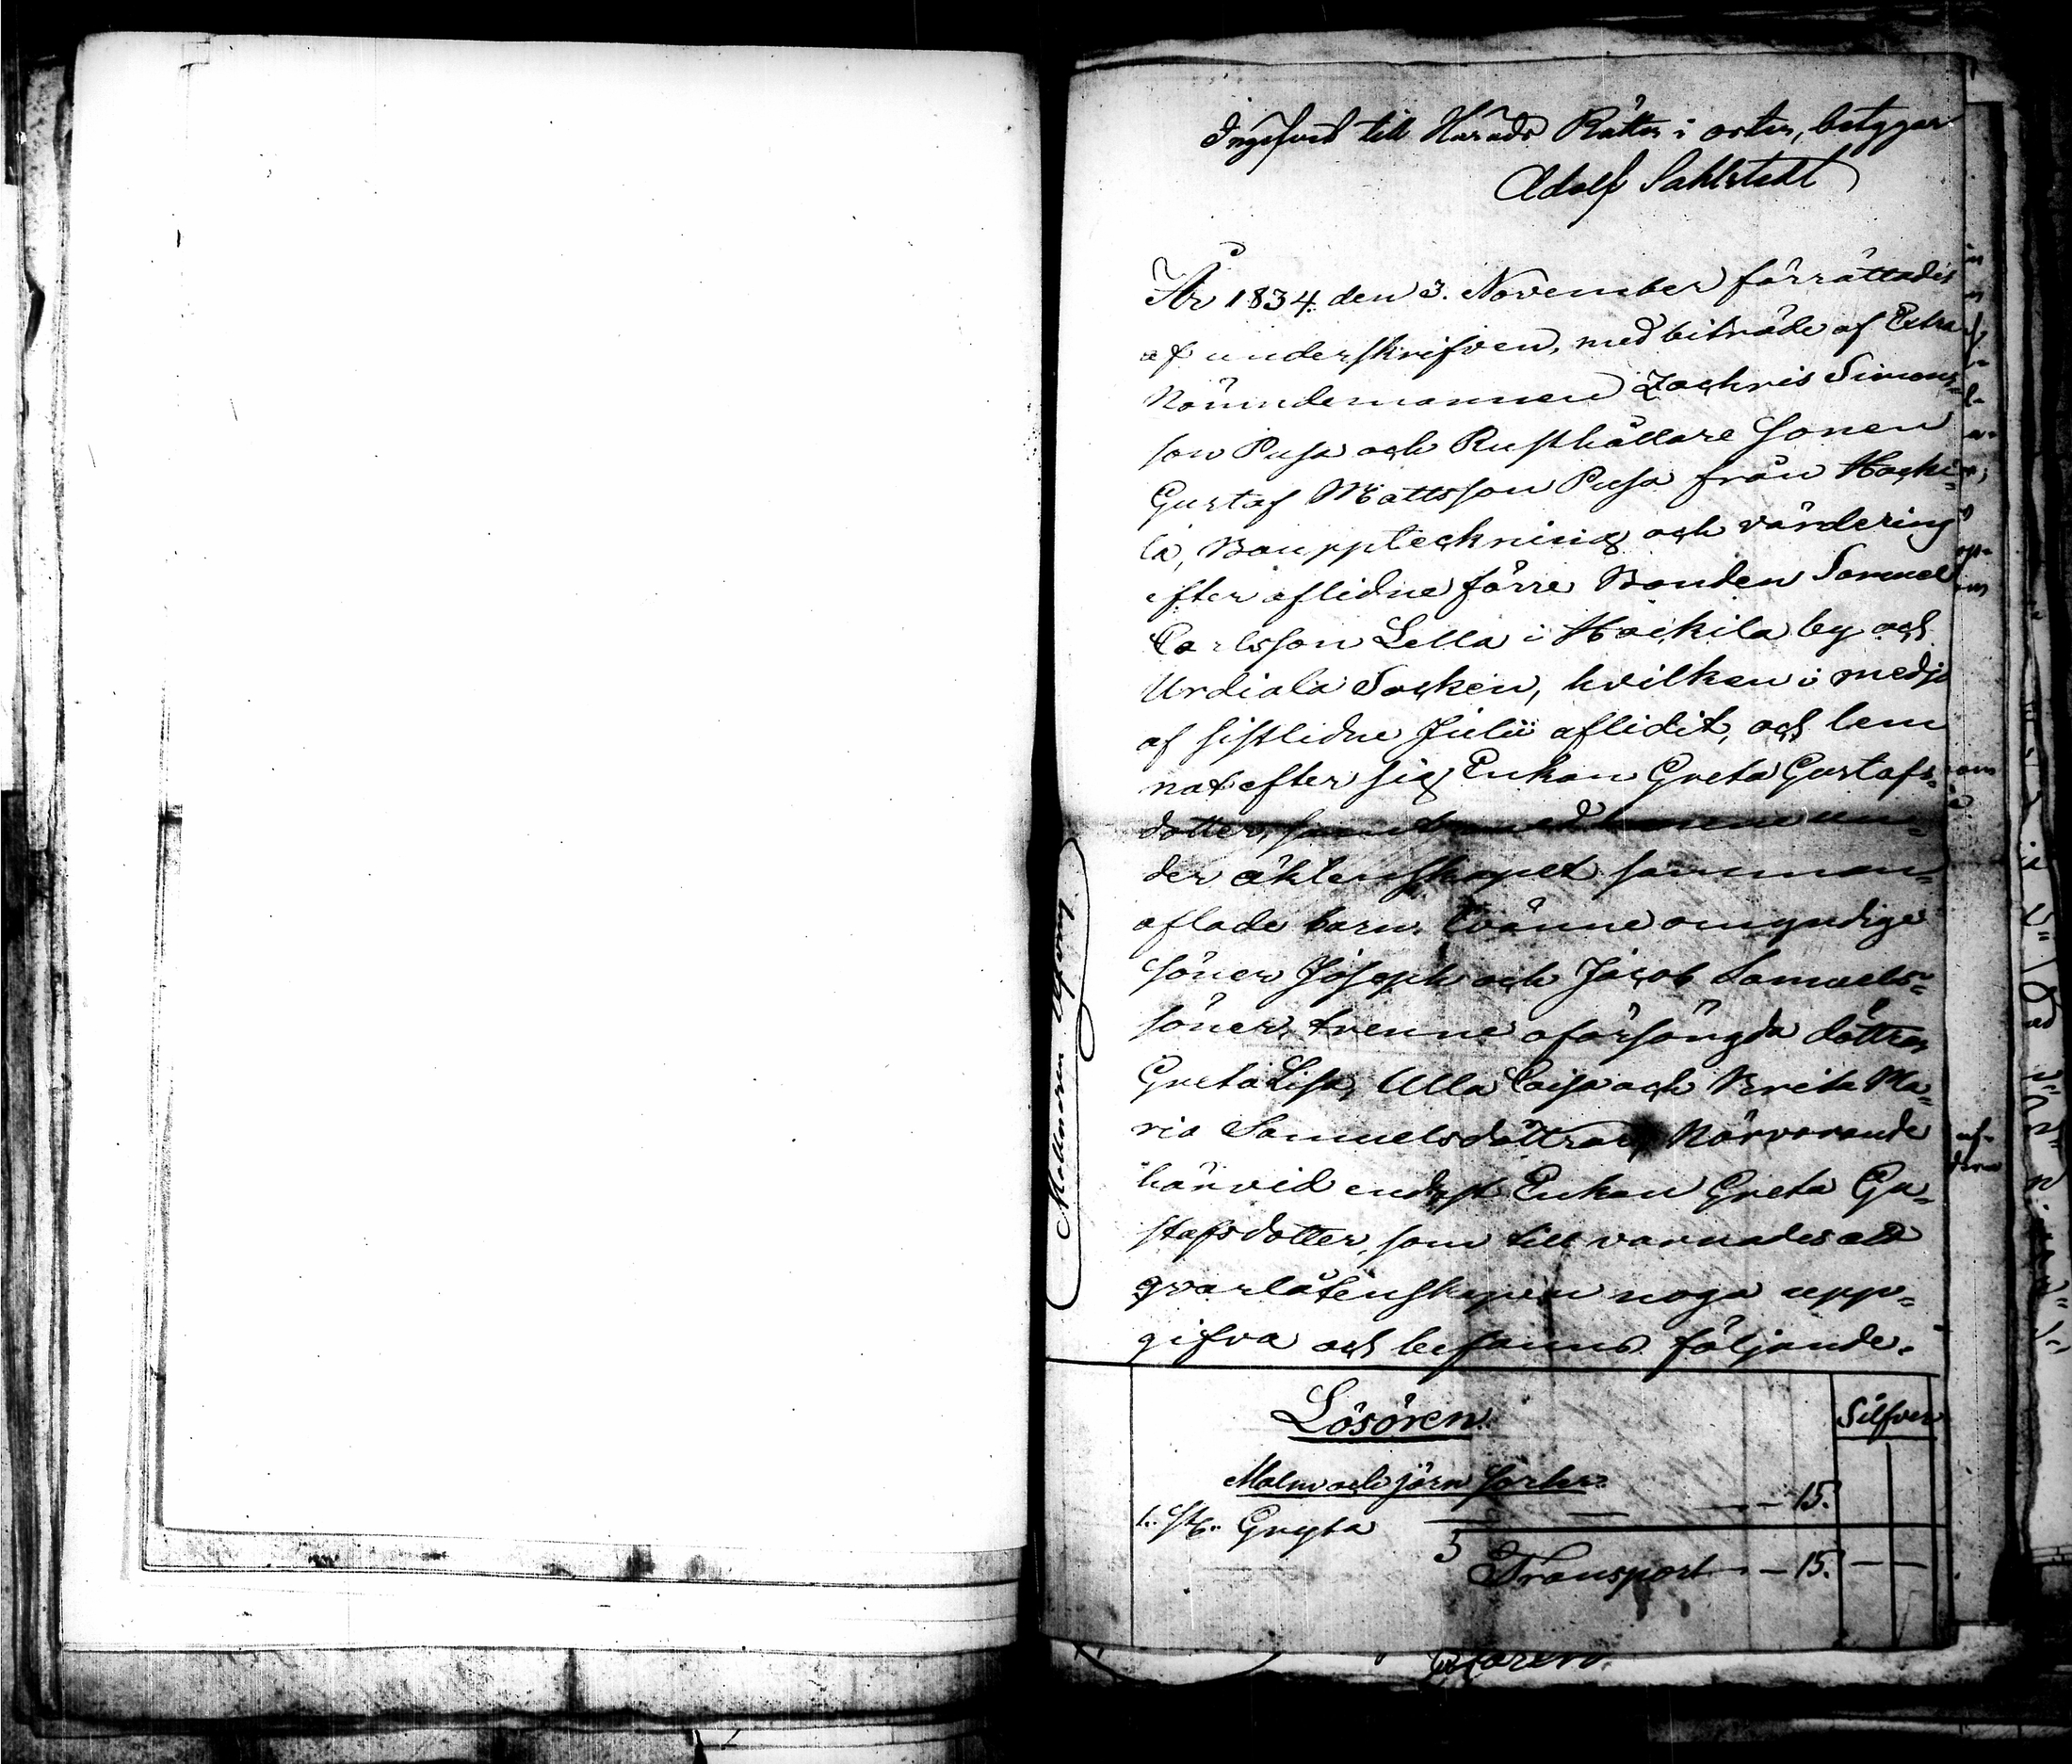 Ingifvet till Härads Rätten i orten, betygar
Adolf Sahlstedt
År 1834 den 3. November förrättades
af underskrifven, med biträde af Extra
Nämndemannen Zachris Simons=
son Pusa och Rusthållare Sonen
Gustaf Mattsson Pusa från Hocki=
la, Bouppteckning och värdering
efter aflidne förre Bonden Samuel
Carlsson Lella i Hockila by och
Urdiala Socken, hvilken i medjo
af sistlidne Julii aflidit, och lem
nat efter sig Enkan Greta Gustafs=
dotter, samt med henne un=
der äktenskapet samman=
aflade barn, tvänne omyndige
söner Joseph och Jacob Samuels=
söner, trenne oförsörgda döttrar
Greta Lisa, Ulla Caisa och Brita Ma=
ria Samuelsdöttrar, Närvarande
härvid endast Enkan Greta Gu=
stafsdotter, som tillvarnades att
qvarlåtenskapen noga upp=
gifva och befanns följande.
Lösören.
Silfver
Malm och järn saker.
1. st. Gryta — — — 15.
Transport — 15. — —